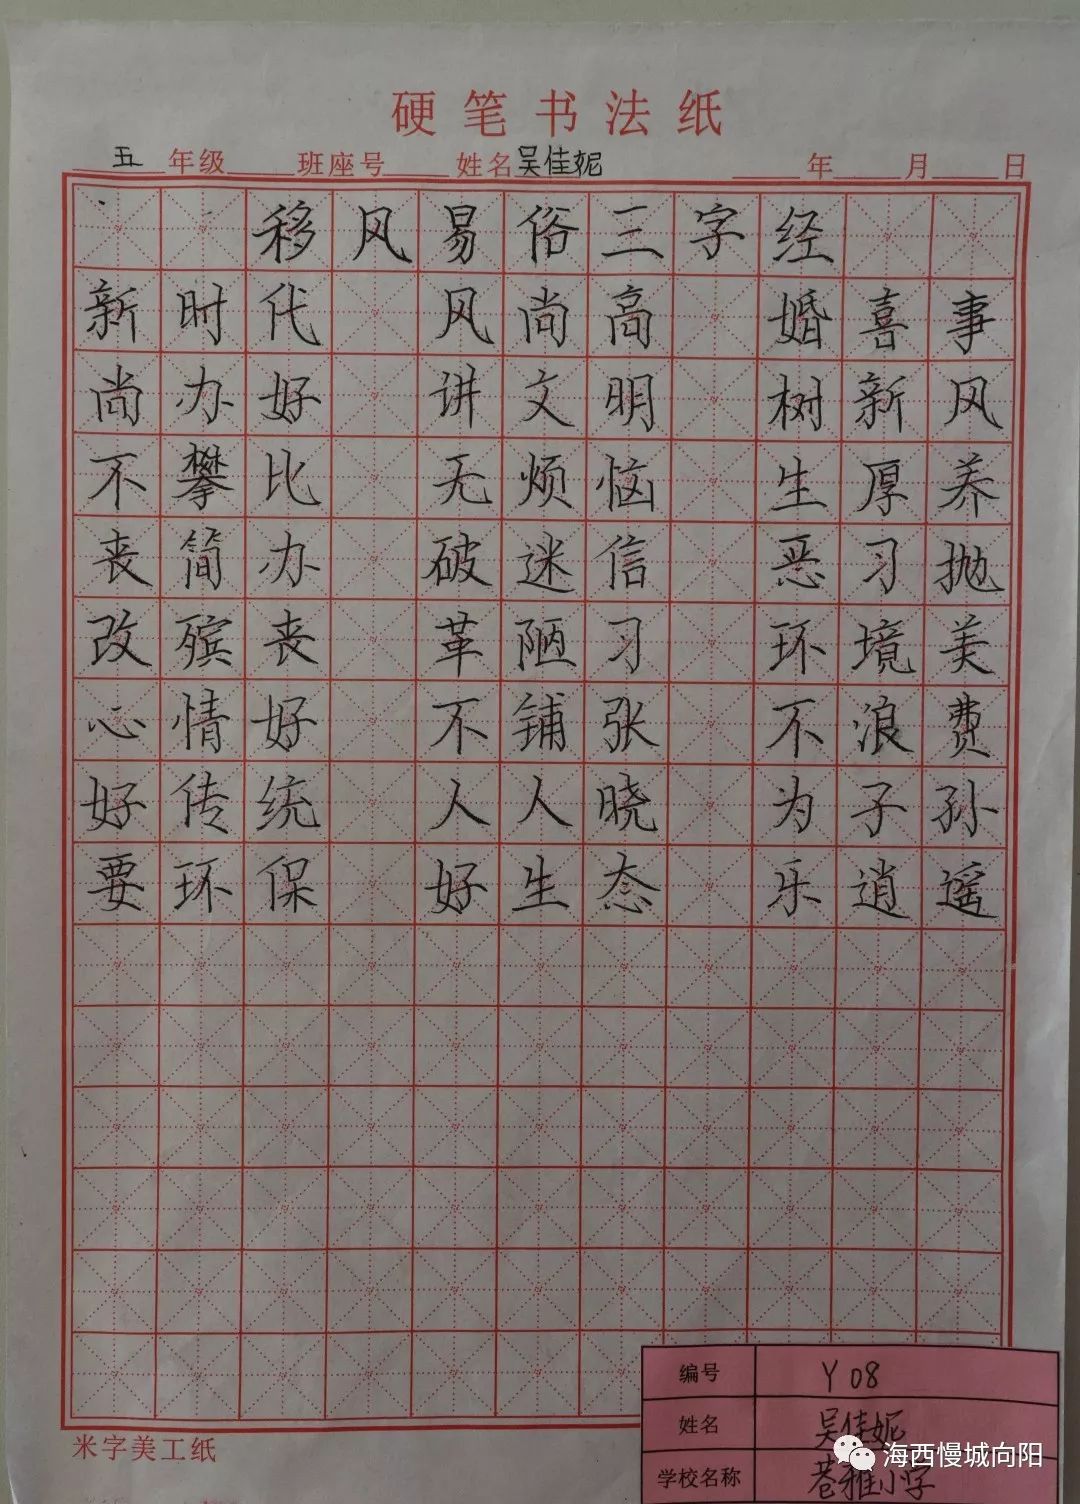 硬笔书法纸
五年级 班座号 姓名吴佳妮 年 月 日
移风易俗三字经
新时代 风尚高 婚喜事
尚办好 讲文明 树新风
不攀比 无烦恼 生厚养
丧简办 破迷信 恶习抛
改殡丧 革陋习 环境美
心情好 不铺张 不浪费
好传统 人人晓 为子孙
要环保 好生态 乐逍遥
编号 Y08
姓名 吴佳妮
学校名称 苍雅小学
米字美工纸
海西慢城向阳